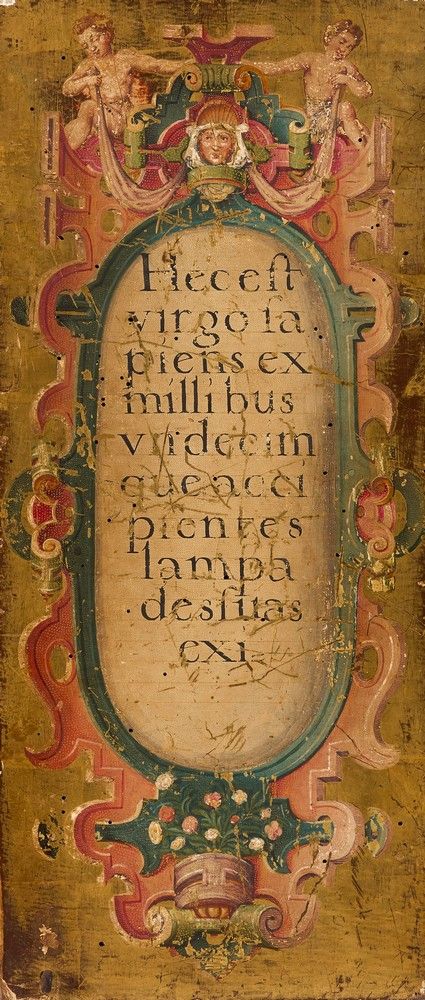 Hec est
virgo sa
piens ex
milli bus
vndecim
que acci
pientes
lampa
des suas
exi